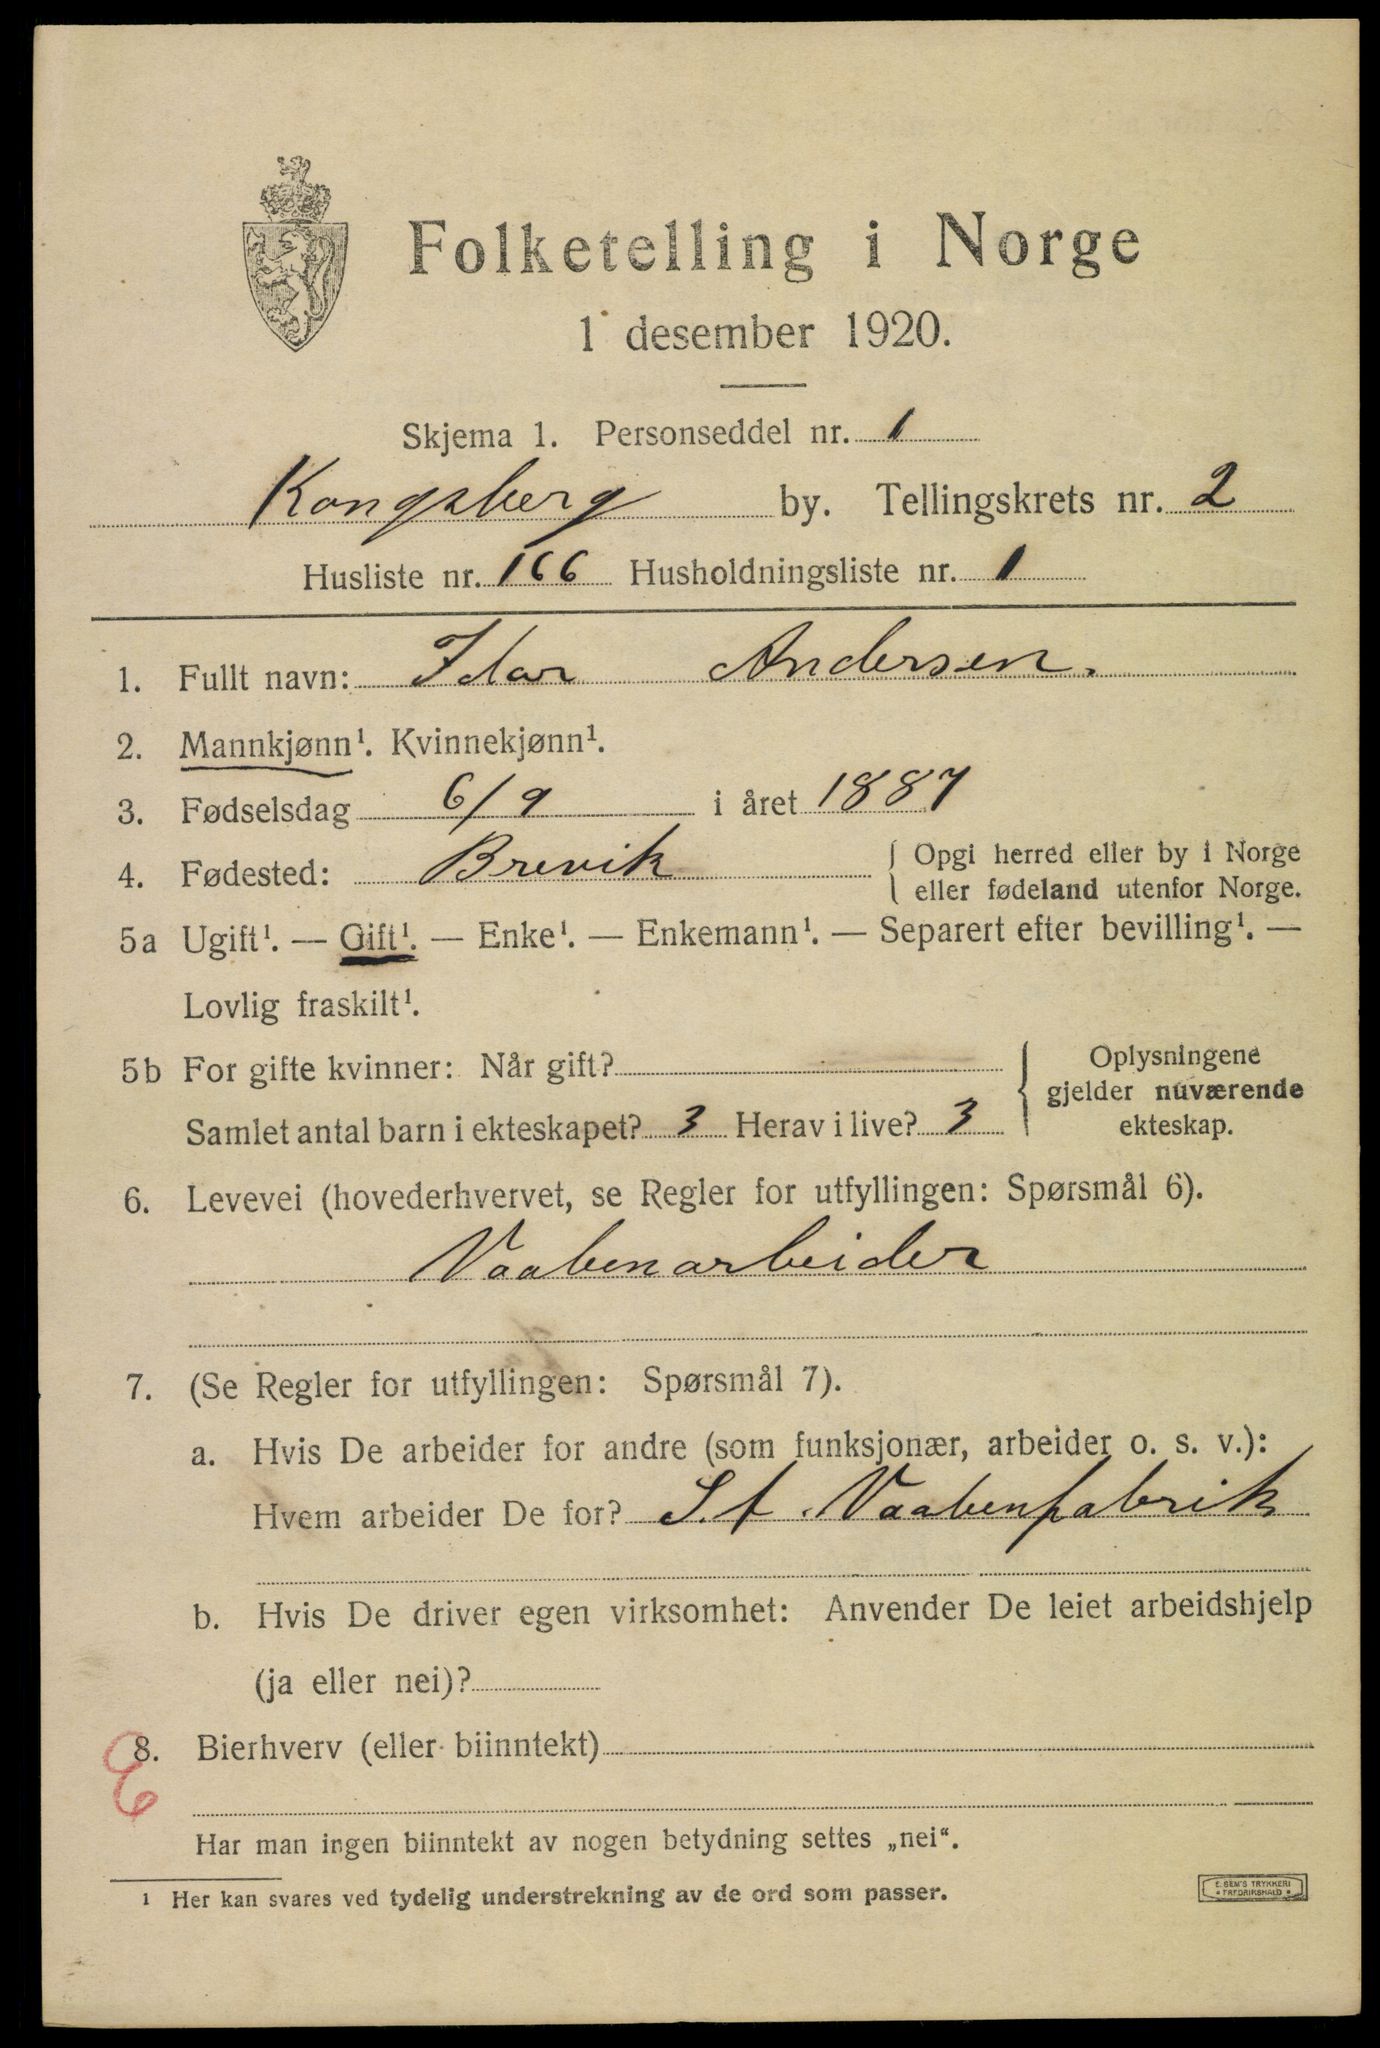 Folketelling i Norge
1 desember 1920.
Skjema 1. Personseddel nr. 1
Kongsberg by. Tellingskrets nr. 2
Husliste nr. 166 Husholdningsliste nr. 1
1. Fullt navn: Idar Andersen.
2. Mannkjønn¹. Kvinnekjønn¹.
3. Fødselsdag 6/9 i året 1887
4. Fødested: Brevik { Opgi herred eller by i Norge
eller fødeland utenfor Norge.
5a Ugift¹. — Gift¹. — Enke¹. — Enkemann¹. — Separert efter bevilling¹. —
Lovlig fraskilt¹.
5b For gifte kvinner: Når gift?
Samlet antal barn i ekteskapet? 3 Herav i live? 3
Oplysningene
gjelder nuværende
ekteskap.
6. Levevei (hovederhvervet, se Regler for utfyllingen: Spørsmål 6).
Vaabenarbeider
7. (Se Regler for utfyllingen: Spørsmål 7).
a. Hvis De arbeider for andre (som funksjonær, arbeider o. s. v.):
Hvem arbeider De for? S.t. Vaabenfabrik
b. Hvis De driver egen virksomhet: Anvender De leiet arbeidshjelp
(ja eller nei)?
8. Bierhverv (eller biinntekt)
Har man ingen biinntekt av nogen betydning settes „nei“.
¹ Her kan svares ved tydelig understrekning av de ord som passer.
E. SEM'S TRYKKERI
FREDRIKSHALD